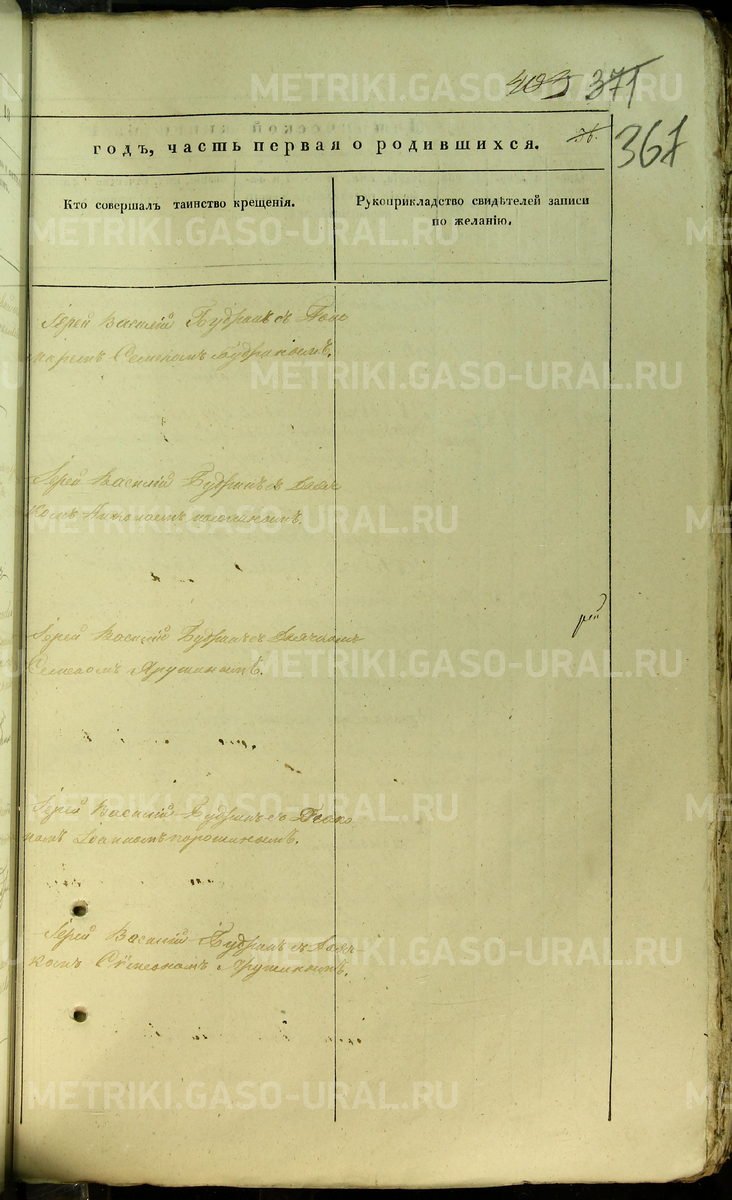 METRIKI.GASO-URAL.RU
403 371
годъ, часть первая о родившихся. 36. 367
Кто совершалъ таинство крещенія.
Рукоприкладство свидѣтелей записи
по желанію.
Іерей Василій Будринъ съ Поно
маремъ Семеномъ Будринымъ.
Іерей Василій Будринъ съ Дьяч
комъ
Іерей Василій Будринъ съ Дьячкомъ
Семеномъ Ярушинымъ.
Іерей Василій Будринъ съ Діако
номъ Іоанномъ Порошинымъ.
Іерей Василій Будринъ съ Дьяч-
комъ Сѵмеономъ Ярушинымъ.
рей